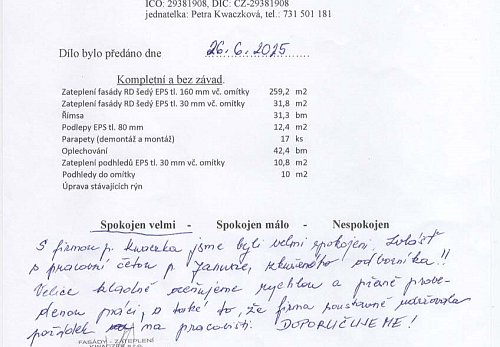 IČO: 29381908, DIČ: CZ-29381908
jednatelka: Petra Kwaczková, tel.: 731 501 181
Dílo bylo předáno dne 26.6.2025
Kompletní a bez závad.
Zateplení fasády RD šedý EPS tl. 160 mm vč. omítky 259,2 m2
Zateplení fasády RD šedý EPS tl. 30 mm vč. omítky 31,8 m2
Římsa 31,3 bm
Podlepy EPS tl. 80 mm 12,4 m2
Parapety (demontáž a montáž) 17 ks
Oplechování 42,4 bm
Zateplení podhledů EPS tl. 30 mm vč. omítky 10,8 m2
Podhledy do omítky 10 m2
Úprava stávajících rýn
Spokojen velmi - Spokojen málo - Nespokojen
S firmou p. Kwaczka jsme byli velmi spokojeni. Zvlášť
s pracovní četou p. zkušeného odborníka!!
Velice kladně oceňujeme rychlou a přesně prove-
denou práci, a také to, že firma soustavně udržovala
pořádek na pracovišti. DOPORUČUJEME!
FASÁDY - ZATEPLENÍ
KWACZEK s.r.o.